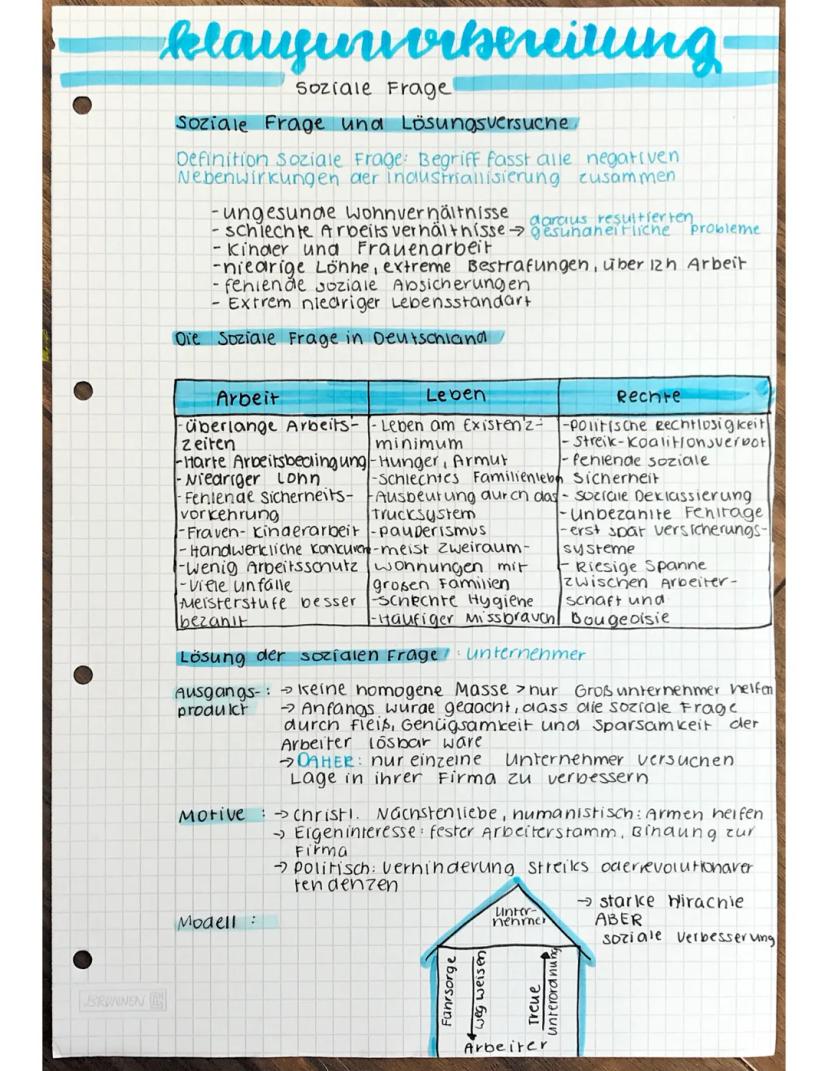 klausurvorbereitung
Soziale Frage
Soziale Frage und Lösungsversuche
Definition Soziale Frage: Begriff fasst alle negativen
Nebenwirkungen der Industriallisierung zusammen
- ungesunde Wohnverhältnisse
- schlechte Arbeitsverhältnisse → daraus resultierten
gesundheitliche probleme
- Kinder und Frauenarbeit
- niedrige Löhne, extreme Bestrafungen, über 12h Arbeit
- fehlende soziale Absicherungen
- Extrem niedriger Lebensstandart
Die Soziale Frage in Deutschland
Arbeit
- überlange Arbeits-
zeiten
- Harte Arbeitsbedingung
- Niedriger Lohn
- Fehlende Sicherheits-
vorkehrung
- Frauen- Kinderarbeit
- Handwerkliche Konkuren
- Wenig Arbeitsschutz
- Viele unfälle
Meisterstufe besser
bezahlt
Leben
- Leben am Existenz-
minimum
- Hunger, Armut
- schlechtes Familienleben
- Ausbeutung durch das
Trucksystem
- pauperismus
- meist zweiraum-
wohnungen mit
großen Familien
- Schlechte Hygiene
- Häufiger Missbrauch
Rechte
- politische Rechtlosigkeit
- Streik-Koalitionsverbot
- fehlende soziale
Sicherheit
- soziale Deklassierung
- Unbezahlte Fehltage
- erst spät versicherungs-
systeme
- Riesige Spanne
zwischen Arbeiter-
schaft und
Bougeoisie
Lösung der sozialen Frage : Unternehmer
Ausgangs- : → Keine homogene Masse > nur Großunternehmer helfen
produkt → Anfangs wurde gedacht, dass die soziale Frage
durch Fleiß, Genügsamkeit und Sparsamkeit der
Arbeiter lösbar wäre
→ DAHER: nur einzelne Unternehmer versuchen
Lage in ihrer Firma zu verbessern
Motive : → christl. Nächstenliebe, humanistisch: Armen helfen
→ Eigeninteresse: fester Arbeiterstamm, Bindung zur
Firma
→ politisch: verhinderung Streiks oder revolutionärer
tendenzen
Modell :
Unter-
nehmer
Führsorge
weg weisen
Treue
unterordnung
Arbeiter
→ starke Hirachie
ABER
soziale verbesserung
BRUNNEN